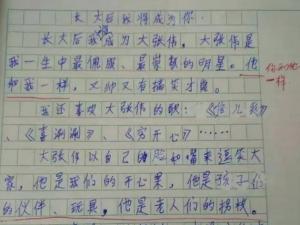 长大后我将成为你
长大后我想成为大张伟。大张伟是
我一生中最佩服、最崇敬的明星。他
和我一样，又帅又有搞笑才能。
你和他
一样
我还喜欢大张伟的歌：《倍儿爽》
、《喜唰唰》、《穷开心》……
大张伟以自己的 来逗笑大
家，他是我们的开心果，他是孩子们
的伙伴、玩具，他是老人们的拐杖。